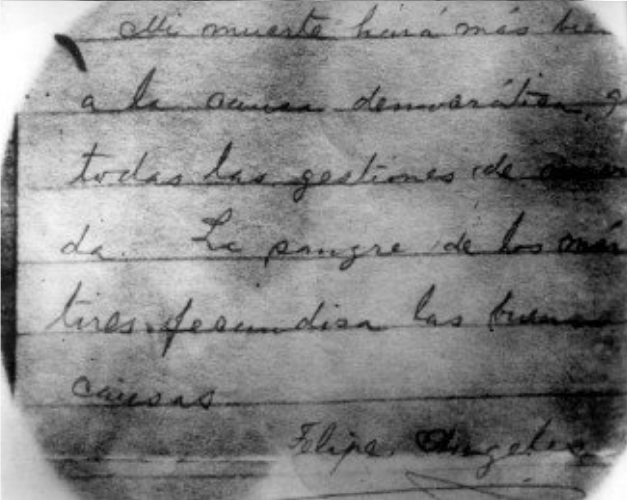 Mi muerte hará más bie
a la causa democrática, q
todas las gestiones de
da. La sangre de los már
tires fecundisa las buenas
causas
Felipe Angeles